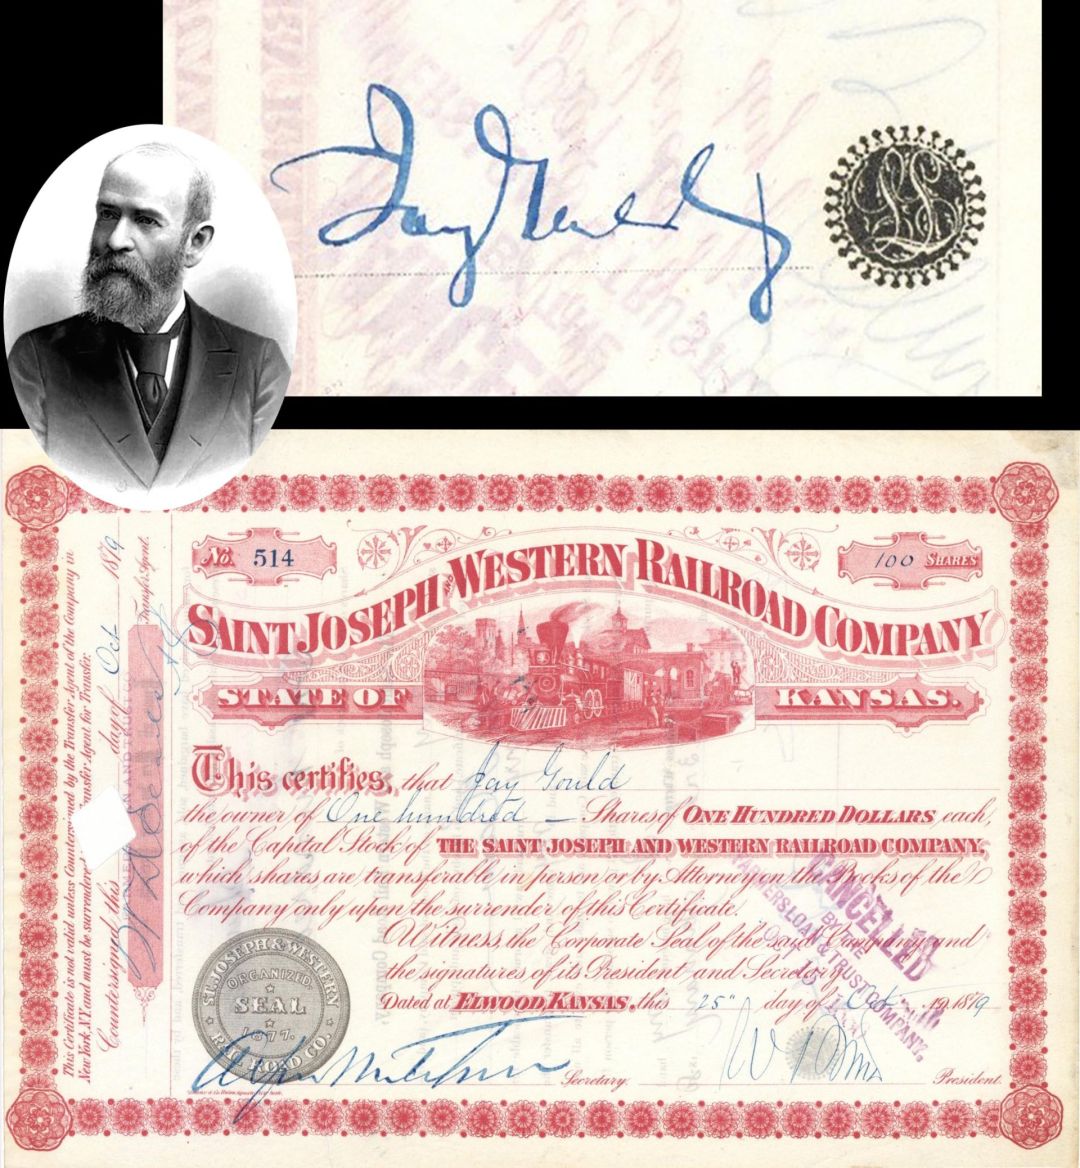 Jay Gould
LS
No. 514
100 SHARES
SAINT JOSEPH AND WESTERN RAILROAD COMPANY
STATE OF KANSAS.
This certifies, that Jay Gould
the owner of One hundred — Shares of ONE HUNDRED DOLLARS each,
of the Capital Stock of THE SAINT JOSEPH AND WESTERN RAILROAD COMPANY,
which shares are transferable in person or by Attorney on the Books of the
Company only upon the surrender of this Certificate.
Witness, the Corporate Seal of the said Company and
the signatures of its President and Secretary
Dated at ELWOOD, KANSAS, this 25" day of Oct 1879
Secretary.
President.
ST. JOSEPH & WESTERN
ORGANIZED.
SEAL
1877.
RAIL ROAD CO.
CANCELLED
BY THE
FARMERS LOAN & TRUST COMPANY,
This Certificate is not valid unless Countersigned by the Transfer Agent of the Company in
New York, N.Y. and must be surrendered Transfer Agent for Transfer.
Countersigned this day of Oct 1879
Transfer Agent.